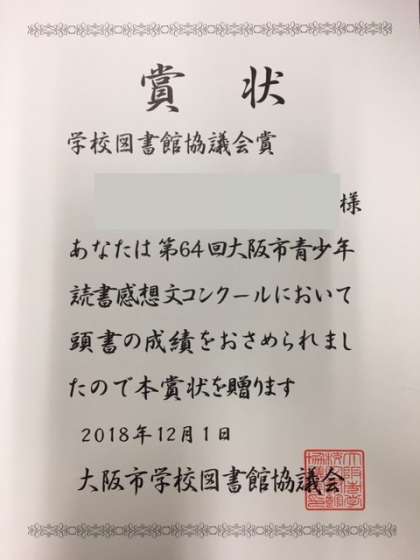 賞状
学校図書館協議会賞
様
あなたは第64回大阪市青少年
読書感想文コンクールにおいて
頭書の成績をおさめられまし
たので本賞状を贈ります
2018年12月1日
大阪市学校図書館協議会